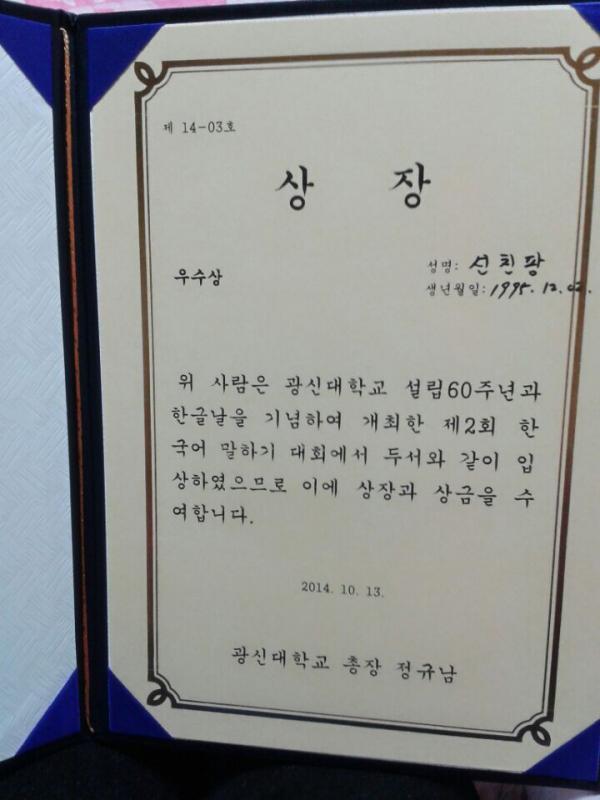 제 14-03호
상 장
우수상
성명: 선친팡
생년월일: 1995. 12. 02.
위 사람은 광신대학교 설립60주년과
한글날을 기념하여 개최한 제2회 한
국어 말하기 대회에서 두서와 같이 입
상하였으므로 이에 상장과 상금을 수
여합니다.
2014. 10. 13.
광신대학교 총장 정규남